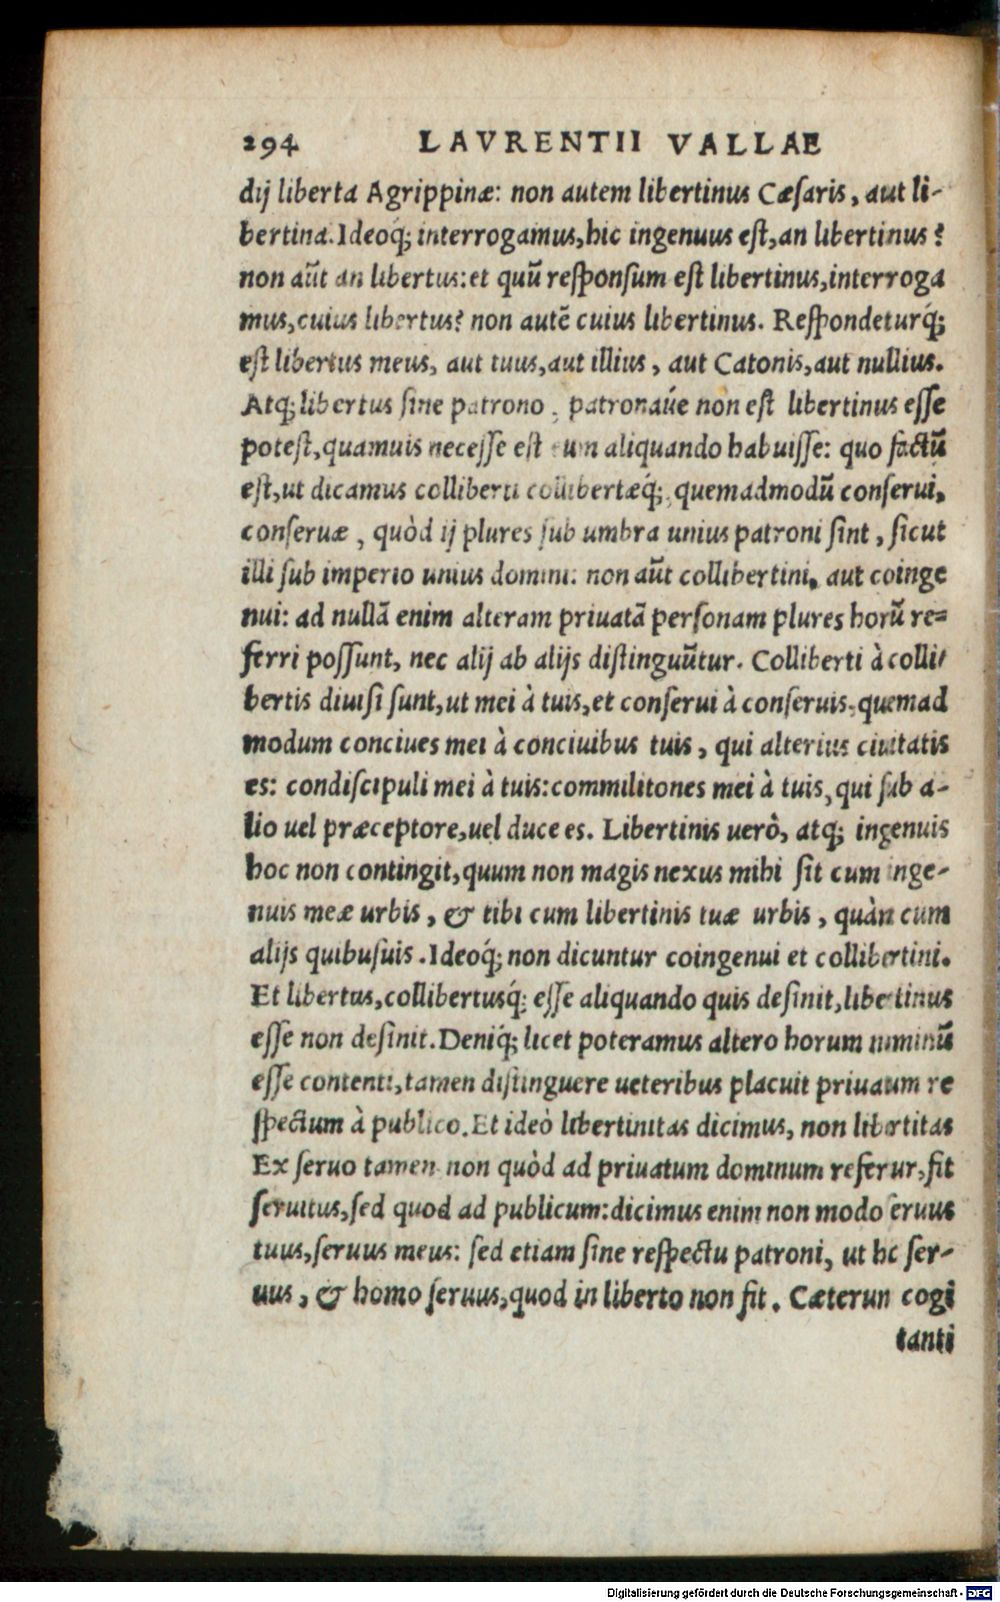 294 LAVRENTII VALLAE
dij liberta Agrippinæ: non autem libertinus Cæsaris, aut li-
bertina. Ideoq́; interrogamus, hic ingenuus est, an libertinus?
non aũt an libertus: et quũ responsum est libertinus, interroga
mus, cuius libertus? non autẽ cuius libertinus. Respondeturq́;
est libertus meus, aut tuus, aut illius, aut Catonis, aut nullius.
Atq; libertus sine patrono, patronaúe non est libertinus esse
potest, quamuis necesse est eum aliquando habuisse: quo factũ
est, ut dicamus colliberti collibertæq́;, quemadmodũ conserui,
conseruæ, quòd ij plures sub umbra unius patroni sint, sicut
illi sub imperio unius domini: non aũt collibertini, aut coinge
nui: ad nullã enim alteram priuatã personam plures horũ re=
ferri possunt, nec alij ab alijs distinguũtur. Colliberti à colli-
bertis diuisi sunt, ut mei à tuis, et conserui à conseruis, quemad
modum conciues mei à conciuibus tuis, qui alterius ciuitatis
es: condiscipuli mei à tuis: commilitones mei à tuis, qui sub a-
lio uel præceptore, uel duce es. Libertinis uerò, atq; ingenuis
hoc non contingit, quum non magis nexus mihi sit cum inge-
nuis meæ urbis, & tibi cum libertinis tuæ urbis, quàm cum
alijs quibusuis. Ideoq́; non dicuntur coingenui et collibertini.
Et libertus, collibertusq́; esse aliquando quis desinit, libertinus
esse non desinit. Deniq́; licet poteramus altero horum nominũ
esse contenti, tamen distinguere ueteribus placuit priuatum re
spectum à publico. Et ideò libertinitas dicimus, non libertitas
Ex seruo tamen non quòd ad priuatum dominum refertur, fit
seruitus, sed quod ad publicum: dicimus enim non modo seruus
tuus, seruus meus: sed etiam sine respectu patroni, ut hc ser-
uus, & homo seruus, quod in liberto non fit. Cæterun cogi
tanti
Digitalisierung gefördert durch die Deutsche Forschungsgemeinschaft - DFG